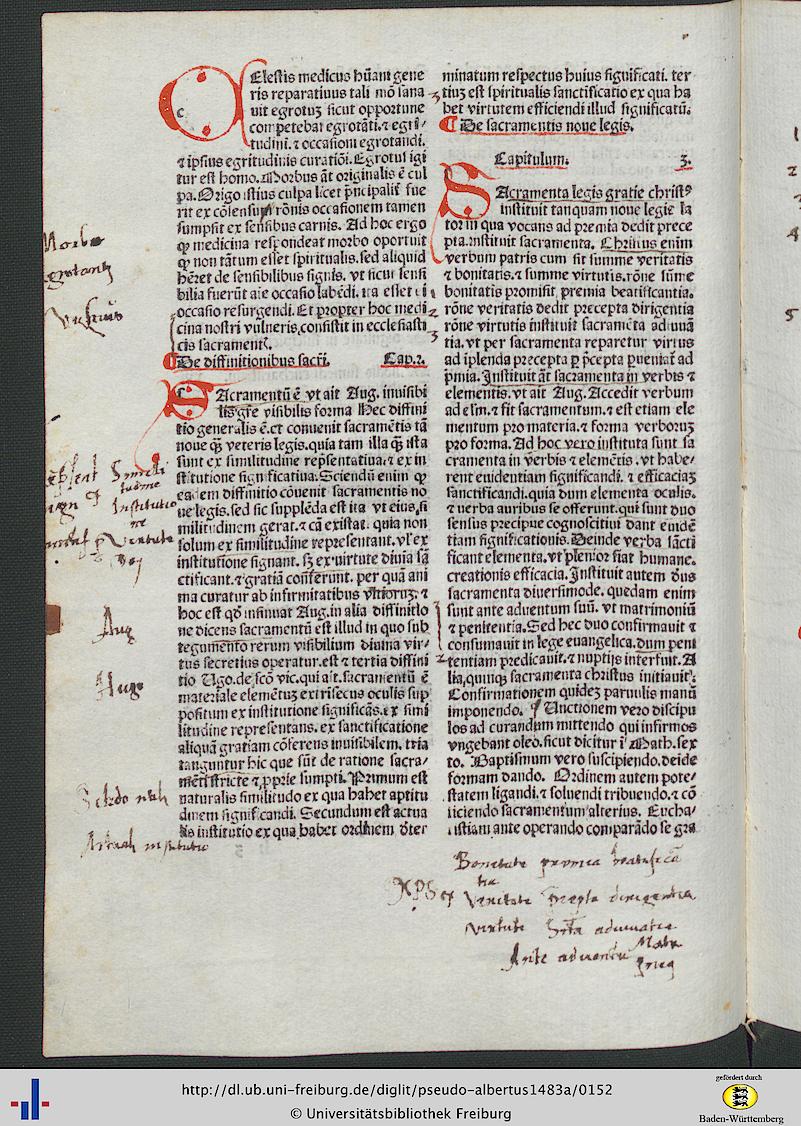 Elestis medicus hūani gene
ris reparatiuus tali mō sana
uit egrotuꝫ sicut opportune
competebat egrotāti. ⁊ egri⸗
tudini. ⁊ occasioni egrotandi.
⁊ ipsius egritudinis curatiōi. Egrotus igi
tur est homo. Morbus āt originalis ē cul
pa. Origo istius culpa licet pncipalif fue
rit ex cōsensu rōnis occasionem tamen
sumpsit ex sensibus carnis. Ad hoc ergo
ꝙ medicina respondeat morbo oportuit
ꝙ non tātum esset spiritualis. sed aliquid
hēret de sensibilibus signis. vt sicut sensi
bilia fuerūt aīe occasio labēdi. ita esset eī
occasio resurgendi. Et propter hoc medi
cina nostri vulneris, consistit in ecclesiasti
cis sacramentꝭ.
De diffinitionibus sacrī. Cap. 2.
Sacramentū ē vt ait Aug. inuisibi
lis gr̄e visibilis forma Hec diffini
tio generalis ē. et conuenit sacramētis tā
noue qꝫ veteris legis. quia tam illa qꝫ ista
sunt ex similitudine repsentatiua. ⁊ ex in
stitutione significatiua. Sciendū enim ꝙ
eadem diffinitio cōuenit sacramentis no
ue legis. sed sic supplēda est ita vt eius, si
militudinem gerat. ⁊ cā existat. quia non
solum ex similitudine representant. vl' ex
institutione signant. sꝫ ex virtute diuīa sā
ctificant. ⁊ gratiā conferunt. per quā ani
ma curatur ab infirmitatibus vitioruꝫ. ⁊
hoc est qd̄ insinuat Aug. in alia diffinitio
ne dicens sacramentū est illud in quo sub
tegumento rerum visibilium diuina vir⸗
tus secretius operatur. est ⁊ tertia diffini
tio Ugo. de scō vic. qui ait. sacramentū ē
materiale elemētuꝫ extrīsecus oculis sup
positum ex institutione significās. ex simi
litudine representans. ex sanctificatione
aliquā gratiam cōferens inuisibilem. tria
tanguntur hic que sūt de ratione sacra⸗
mēti stricte ⁊ pprie sumpti. Primum est
naturalis similitudo ex qua habet aptitu
dinem significandi. Secundum est actua
lis institutio ex qua habet ordinem deter
minatum respectus huius significati. ter
tiuꝫ est spiritualis sanctificatio ex qua ha
bet virtutem efficiendi illud significatū.
De sacramentis noue legis.
Capitulum. 3.
Sacramenta legis gratie christꝰ
instituit tanquam noue legis la
tor in qua vocans ad premia dedit prece
pta. instituit sacramenta. Christus enim
verbum patris cum sit summe veritatis
⁊ bonitatis. ⁊ summe virtutis. rōne sūme
bonitatis promisit premia beatificantia.
rōne veritatis dedit precepta dirigentia
rōne virtutis instituit sacramēta adiuuā
tia. vt per sacramenta reparetur virtus
ad iplenda precepta p pcepta pueniat ad
pmia. Instituit āt sacramenta in verbis ⁊
elementis. vt ait Aug. Accedit verbum
ad elm. ⁊ fit sacramentum. ⁊ est etiam ele
mentum pro materia. ⁊ forma verboruꝫ
pro forma. Ad hoc vero instituta sunt sa
cramenta in verbis ⁊ elemētis. vt habe⸗
rent euidentiam significandi. ⁊ efficaciaꝫ
sanctificandi. quia dum elementa oculis.
⁊ verba auribus se offerunt. qui sunt duo
sensus precipue cognoscitiui dant euidē
tiam significationis. Deinde verba sācti
ficant elementa. vt plenior fiat humane.
creationis efficacia. Instituit autem dn̄s
sacramenta diuersimode. quedam enim
sunt ante aduentum suū. vt matrimoniū
⁊ penitentia. Sed hec duo confirmauit ⁊
consumauit in lege euangelica. dum peni
tentiam predicauit. ⁊ nuptijs interfuit. A
lia, quinqꝫ sacramenta christus initiauit.
Confirmationem quideꝫ paruulis manū
imponendo. Unctionem vero discipu
los ad curandum mittendo qui infirmos
vngebant oleo. sicut dicitur ī Math. sex
to. Baptismum vero suscipiendo. deīde
formam dando. Ordinem autem pote⸗
statem ligandi. ⁊ soluendi tribuendo. ⁊ cō
ijciendo sacramentum alterius. Eucha⸗
ristiam ante operando comparādo se gra
Aug
Hugo
Bonitate premia beatificā
tia
XPS Veritate precepta dirigentia
virtute adiuuatia
Ante aduentū Matr
http://dl.ub.uni-freiburg.de/diglit/pseudo-albertus1483a/0152
© Universitätsbibliothek Freiburg
gefördert durch
Baden-Württemberg